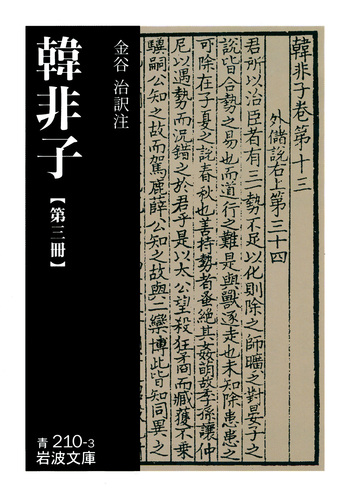 韓非子
【第三冊】
金谷 治訳注
青 210-3
岩波文庫
韓非子卷第十三
外儲說右上第三十四
君所以治臣者有三勢不足以化則除之師曠之對晏子之
說皆合勢之易也而道行之難是與獸逐走也未知除患患之
可除在子夏之說春秋也善持勢者蚤絕其姦萌故季孫讓仲
尼以遇勢而況錯之於君乎是以太公望殺狂矞而臧獲不乗
驥嗣公知之故而駕鹿薛公知之故與二欒博此皆知同異之